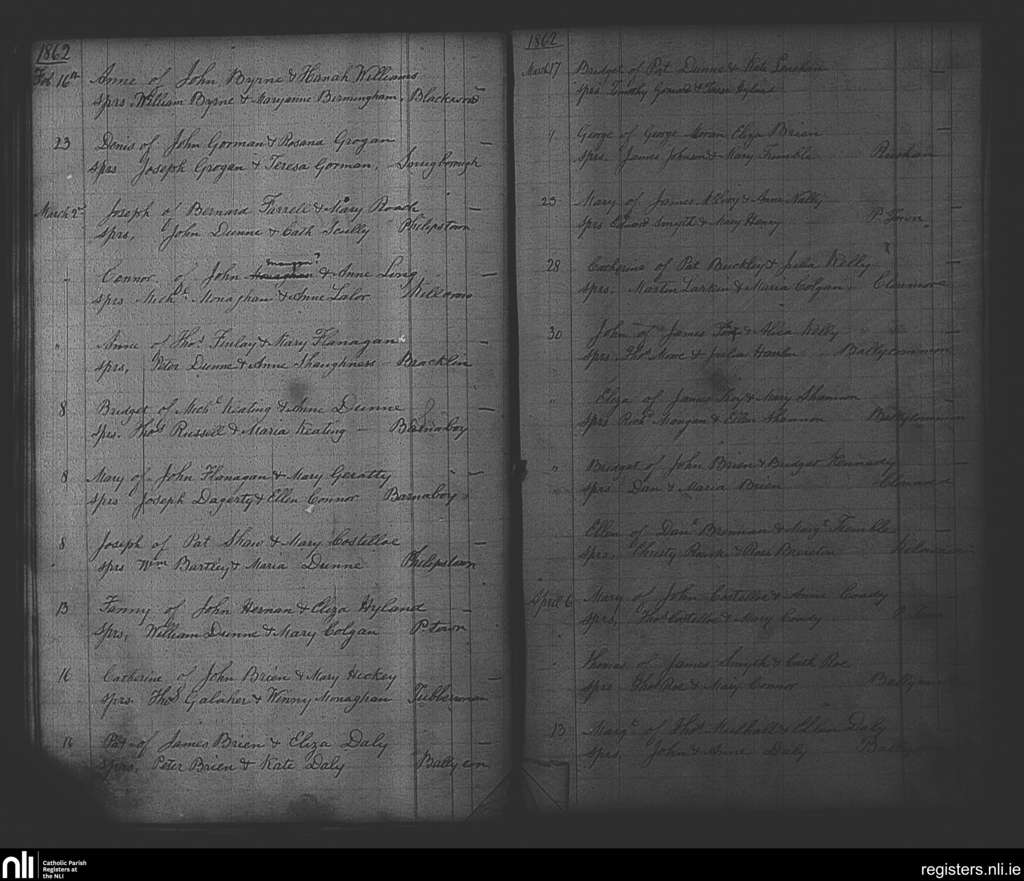 1862
Feb 16th Anne of John Byrne & Hanah Williams —
Sprs. William Byrne & Maryanne Bermingham. Blackwood
23 Denis of John Gorman & Rosana Grogan —
Sprs Joseph Grogan & Teresa Gorman, Srugborough
March 2d Joseph of Bernard Farrell & Mary Roach —
Sprs, John Dunne & Cath Scully Philipstown
mangan?
" Connor of John Monaghan & Anne Long —
Sprs Michl. Monaghan & Anne Lalor
" Anne of Thos. Finlay & Mary Flanagan —
Sprs, Peter Dunne & Anne Shaughness Bracklin
8 Bridget of Michl Keating & Anne Dunne —
Sprs. Thos Russell & Maria Keating — Barnaboy
8 Mary of John Flanagan & Mary Geratty —
Sprs Joseph Dagerty & Ellen Connor Barnaboy
8 Joseph of Pat Shaw & Mary Costelloe —
Sprs Wm Bartley & Maria Dunne Philipstown
13 Fanny of John Hernan & Eliza Hyland —
Sprs, William Dunne & Mary Colgan P. town
16 Catherine of John Brien & Mary Hickey —
Sprs. Thos Galaher & Winny Monaghan Tubberman
16 Pat of James Brien & Eliza Daly —
Sprs. Peter Brien & Kate Daly Ballycon
1862
March 17 Bridget of Pat Dunne & Kate —
Sprs Timothy & Hyland
" George of George Moran Eliza Brien
Sprs James Johnson & Mary Trimble
25 Mary of James McEvoy & Anne Nally —
Sprs Edward Smyth & Mary Henry P. Town
28 Catherine of Pat Buckley & Julia Kelly —
Sprs. Martin Larkin & Maria Colgan. Clonmore
30 John of James & Alicia Kelly —
Sprs. Thos & Julia Ballycommon
" Eliza of James Troy & Mary Shannon —
Sprs Richd Mangan & Ellen Shannon Ballycommon
" Bridget of John Brien & Bridget Kennedy —
Sprs Dan & Maria Brien
Ellen of Danl. Brennan & Margt. Trimble
Sprs, Christy & Rose
April 6 Mary of John Costelloe & Anne Coady
Sprs, Thos Costelloe & Mary Coady
" Thomas of James Smyth & Cath Roe
Sprs Thos Roe & Mary Connor
13 Margt of Thos. & Ellen Daly
Sprs, John & Anne Daly
nli
Catholic Parish
Registers at
the NLI
registers.nli.ie